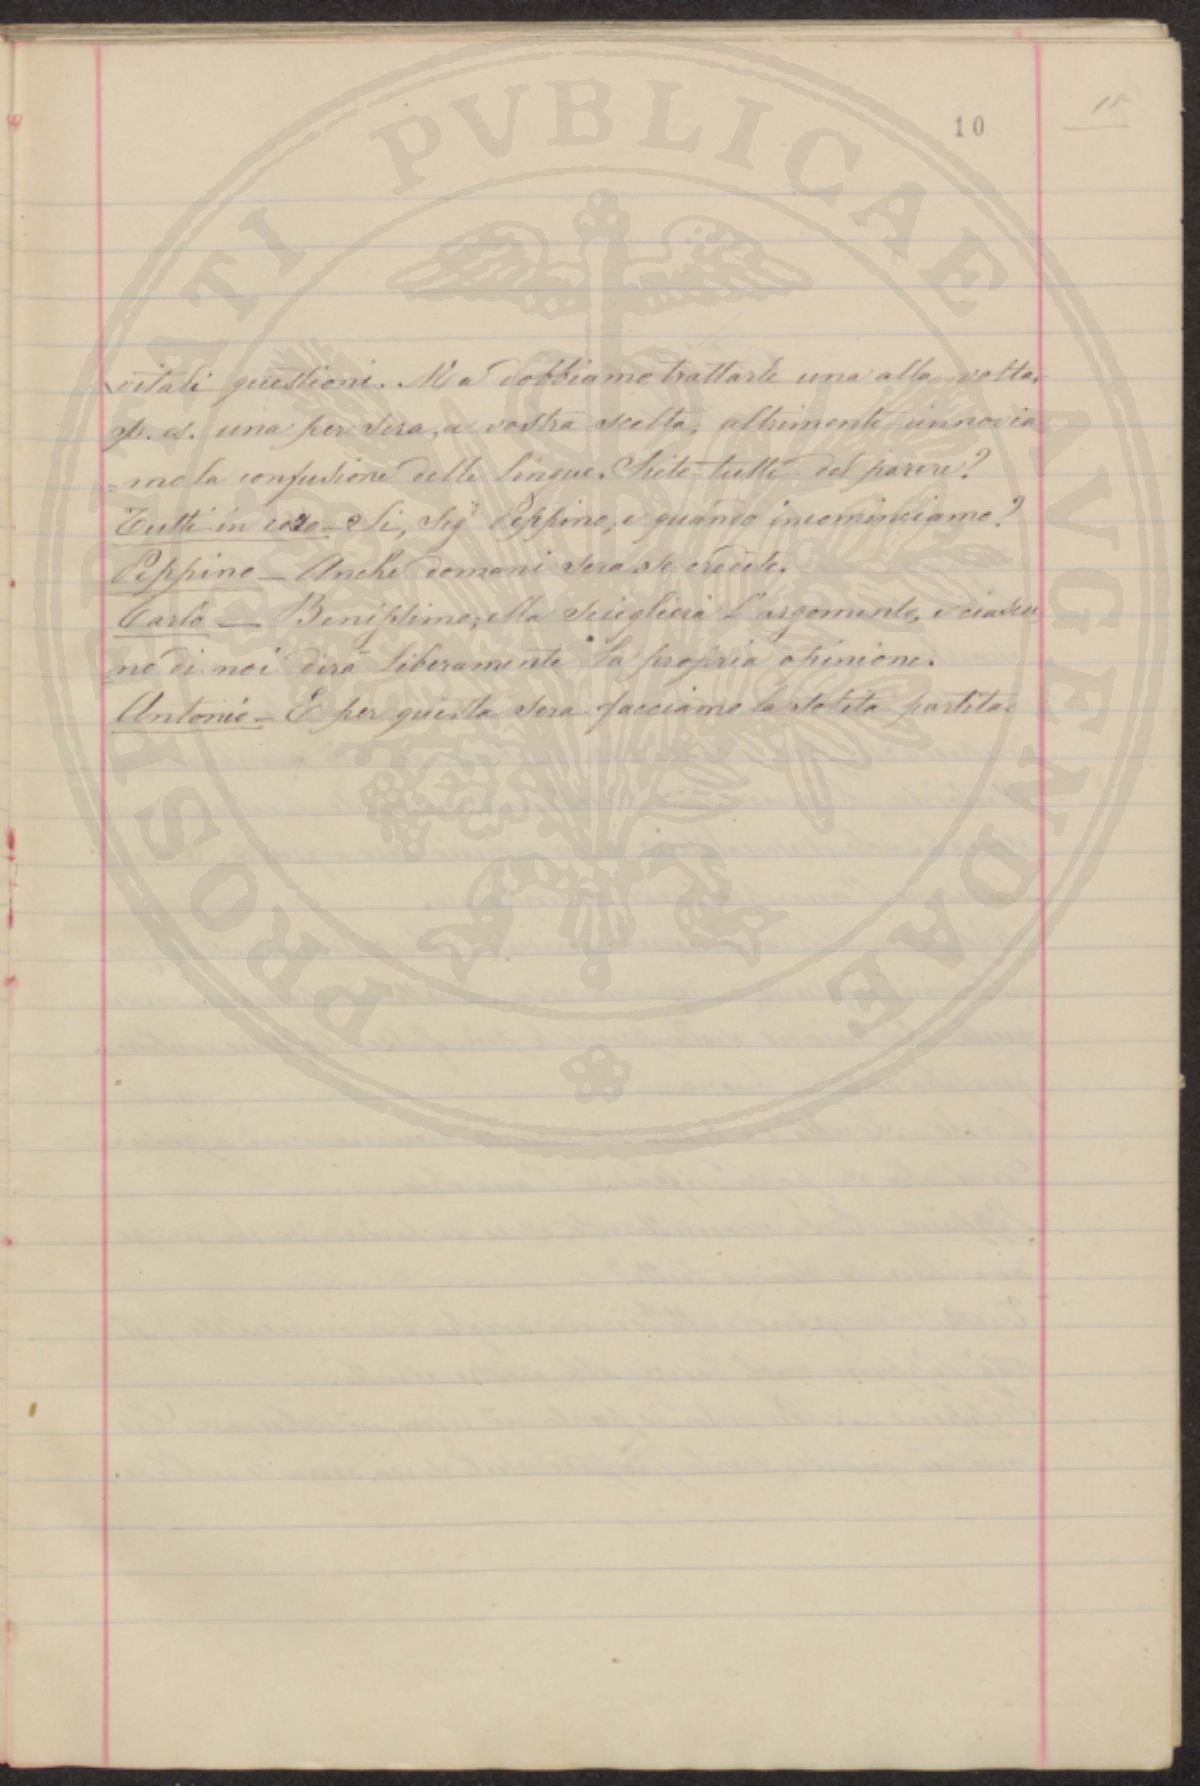 10
15
vitali questioni. Ma dobbiamo trattarle una alla volta,
p. es. una per sera, a vostra scelta, altrimenti rinnovia
=mo la confusione delle lingue. Siete tutti del parere?
Tutti in coro - Si, Sigr Peppino, e quando incominciamo?
Peppino - Anche domani sera se credete.
Carlo - Benissimo, ella sceglierà l'argomento, e ciascu
no di noi dirà liberamente la propria opinione.
Antonio - E per questa sera facciamo la solita partita.
PROSPERITATI PVBLICAE AVGENDAE